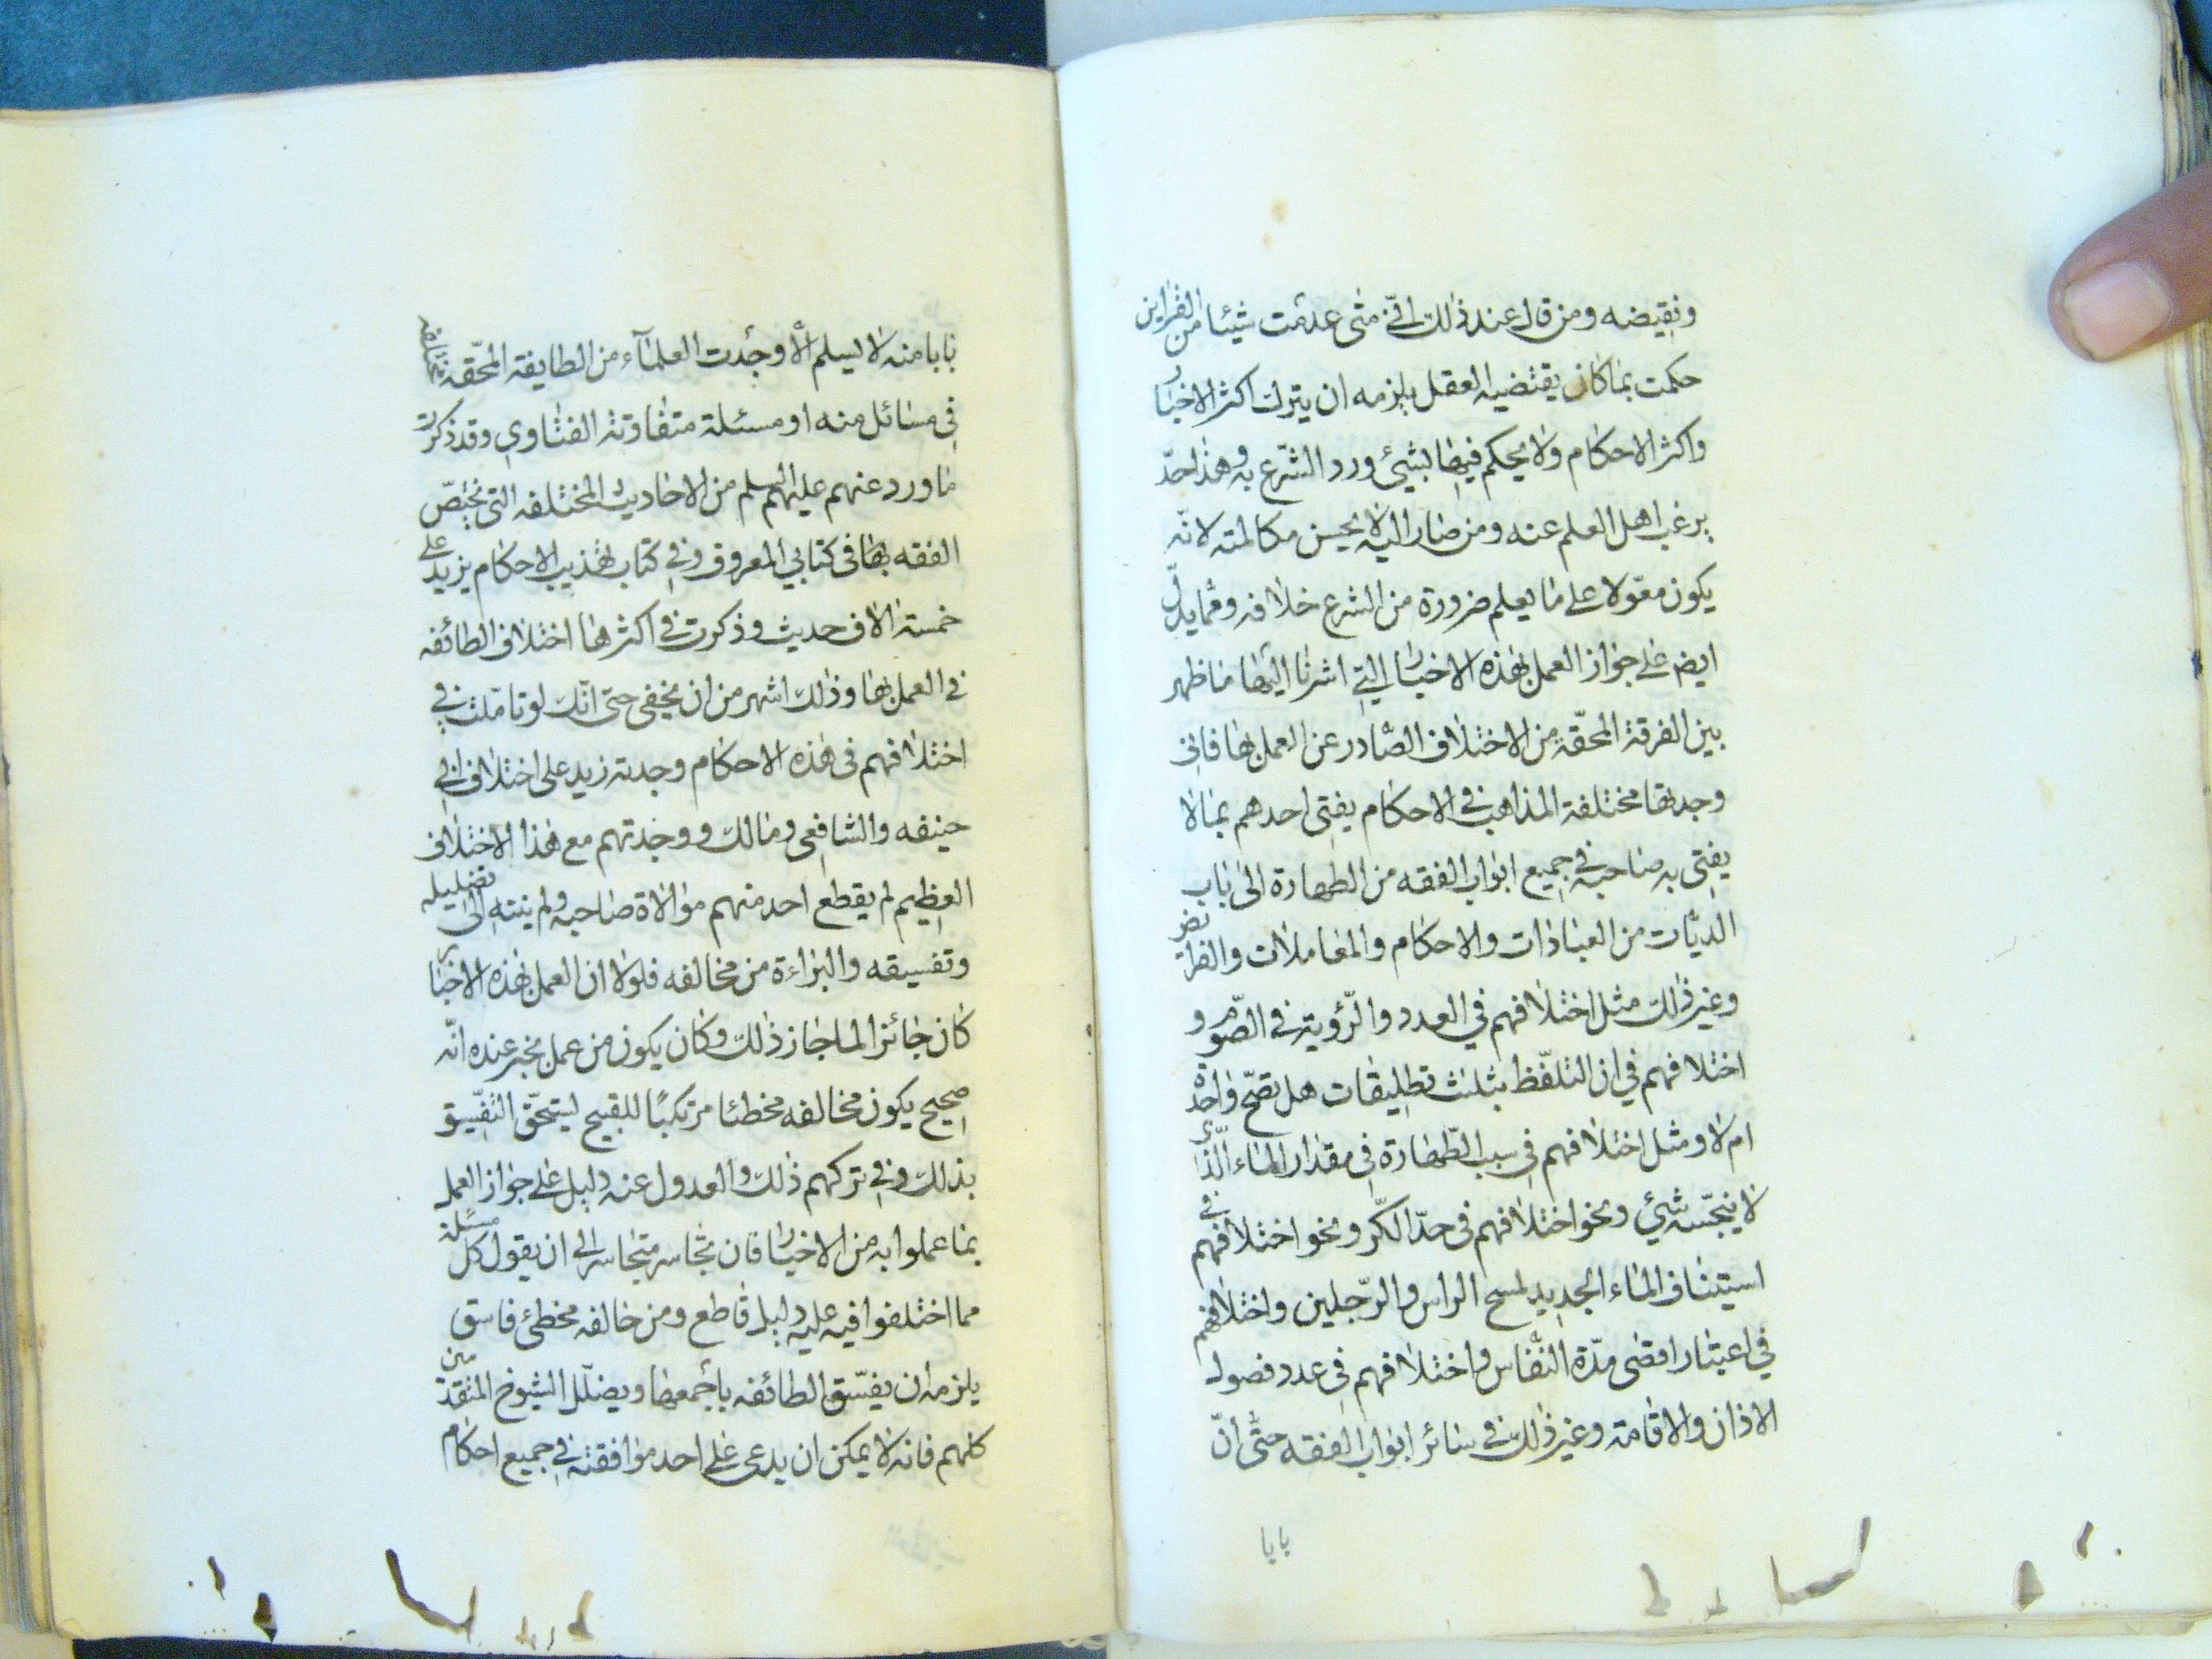 ونقيضه ومن قال عند ذلك انّى متى عدمت شيئا من القراين
حكمت بما كان يقتضيه العقل يلزمه ان يترك اكثر الاخبار
واكثر الاحكام ولا يحكم فيها بشيئ ورد الشرع به وهذا حدّ
يرغب اهل العلم عنه ومن صار اليه لا يحسن مكالمته لانّه
يكون معوّلا على ما يعلم ضرورة من الشرع خلافه وممّا يدلّ
ايضم على جواز العمل بهذه الاخبار التي اشرنا اليها ما ظهر
بين الفرقة المحقّة من الاختلاف الصّادر عن العمل بها فانى
وجدتها مختلفة المذاهب في الاحكام يفتى احدهم بما لا
يفتى به صاحبه في جميع ابواب الفقه من الطهارة الى باب
الديّات من العبادات والاحكام والمعاملات والفرائض
وغير ذلك مثل اختلافهم في العدد والرّؤية في الصّوم و
اختلافهم في ان التلفّظ بثلث تطليقات هل تصحّ واحدة
ام لا ومثل اختلافهم في سبب الطّهارة في مقدار الماء الّذي
لا ينجّسه شيئ ونحو اختلافهم في حدّ الكّر ونحو اختلافهم في
استيناف الماء الجديد لمسح الراس والرّجلين واختلافهم
في اعتبار اقصى مدّة النّفاس واختلافهم في عدد فصول
الاذان والاقامة وغير ذلك في سائر ابواب الفقه حتّى انّ
بابا
بابا منه لا يسلم الّا وجدت العلمآء من الطايفة المحّقة
في مسائل منه او مسئلة متفاوتة الفتاوي وقد ذكرت
ما ورد عنهم عليهم السلم من الاحاديث المختلفه التي تختصّ
الفقه بها في كتابي المعروف وفي كتاب تهذيب الاحكام يزيد على
خمسة الاف حديث وذكرت في اكثرها اختلاف الطائفه
في العمل بها وذلك اشهر من ان يخفى حتى انّك لو تامّلت في
اختلافهم في هذه الاحكام وجدته زيد على اختلاف ابي
حنيفه والشافعي ومالك ووجدتهم مع هذا الاختلاف
العظيم لم يقطع احد منهم موالاة صاحبه ولم ينته الى تضليله
وتفسيقه والبراءة من مخالفه فلولا ان العمل بهذه الاخبار
كان جائزا لما جاز ذلك وكان يكون من عمل بخبر عنده انّه
صحيح يكون مخالفه مخطئا مرتكبًا للقبيح ليتحقّ التفسّيق
بذلك وفي تركهم ذلك والعدول عنه دليل على جواز العمل
بما عملوا به من الاخبار فان تجاسر متجاسر الى ان يقول كل مسئلة
مما اختلفوا فيه عليه دليل قاطع ومن خالفه مخطئ فاسق
يلزمه ان يفسّق الطائفه باجمعها ويضلّل الشيوخ المتقدمين
كلهم فانه لا يمكن ان يدعى على احد موافقته في جميع احكام